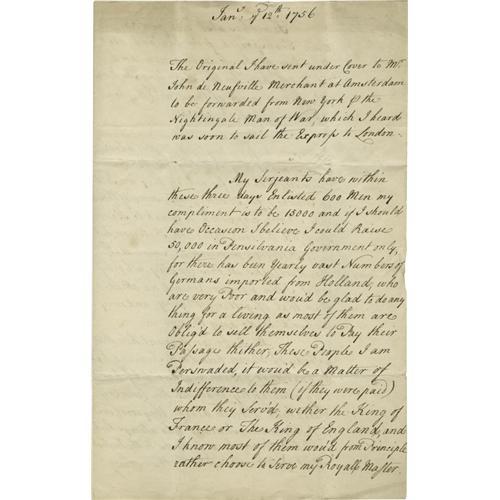 Jany. ye 12th. 1756
The Original I have sent under Cover to Mr.
John de Neufville Merchant at Amsterdam
to be forwarded from New York ⅌ the
Nightingale Man of War, which I heard
was soon to sail the Express to London.
My Serjeants have within
these three days Enlisted 600 Men my
compliment is to be 15000 and if I should
have Occasion I believe I could Raise
50,000 in Pensilvania Government only,
for there has been Yearly vast Numbers of
Germans imported from Holland, who
are very Poor and wou'd be glad to do any
thing for a living as most of them are
Oblig'd to sell themselves to Pay their
Passage thither, These People I am
Perswaded, it wou'd be a Matter of
Indifference to them (if they were paid)
whom they Serv'd, wether the King of
France or The King of England, and
I know most of them wou'd from Principle
rather choose to Serve my Royall Master.